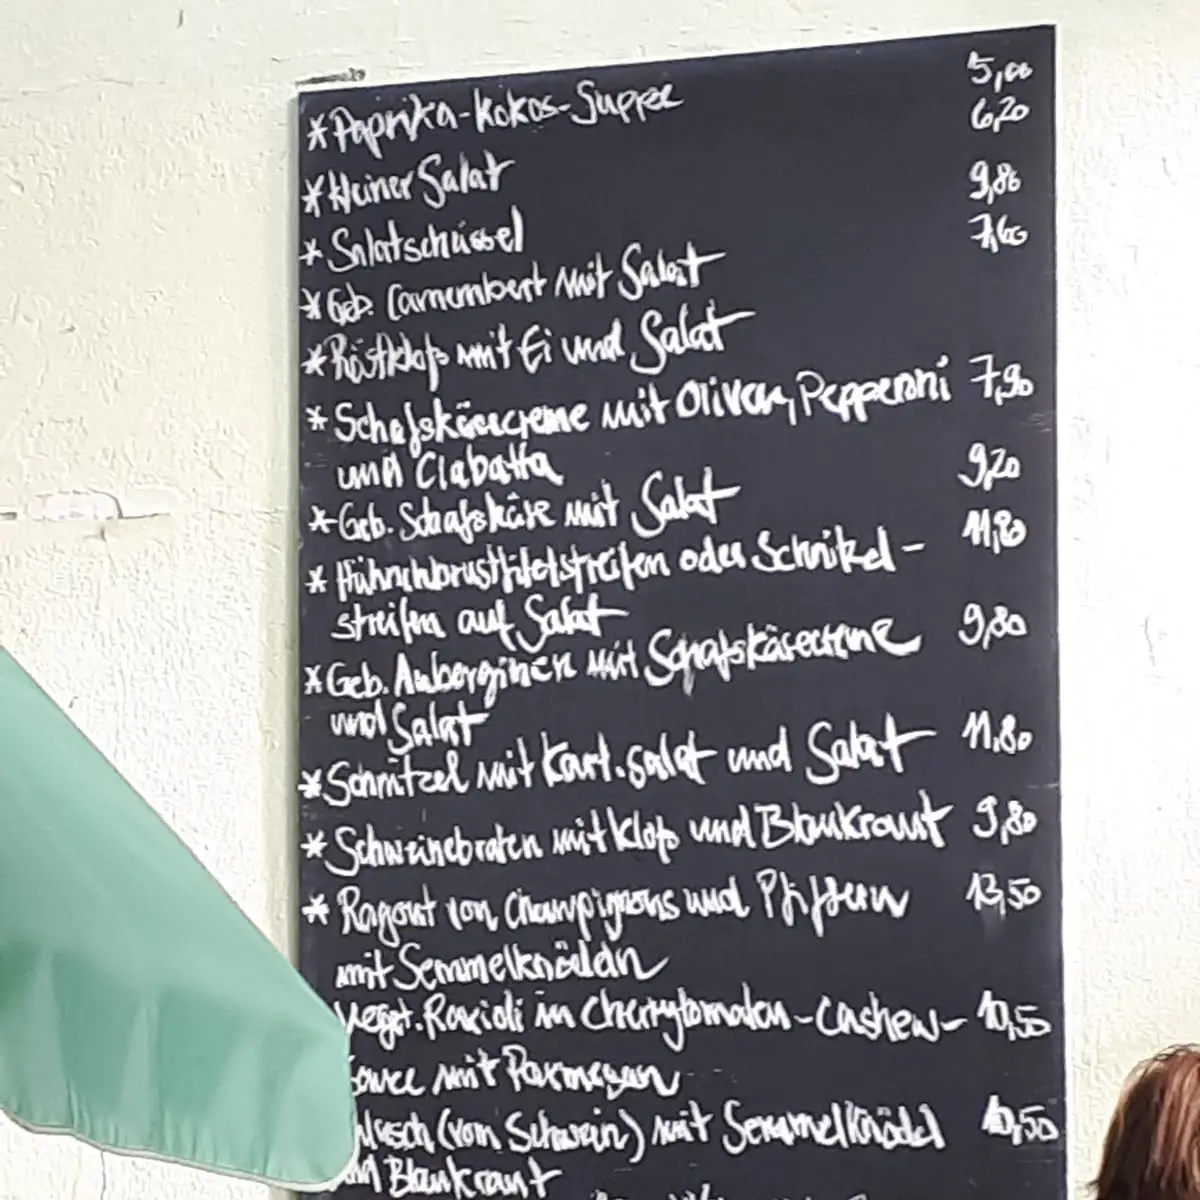 * Paprika-Kokos-Suppe 5,00
6,20
* Kleiner Salat 9,80
* Salatschüssel 7,60
* Geb. Camembert mit Salat
* Röstkloß mit Ei und Salat
* Schafskäsecreme mit Oliven, Pepperoni 7,90
und Ciabatta
* Geb. Schafskäse mit Salat 9,20
* Hühnchbrustfiletstreifen oder Schnitzel- 11,80
streifen auf Salat
* Geb. Auberginen mit Schafskäsecreme 9,80
und Salat
* Schnitzel mit Kart.salat und Salat 11,80
* Schweinebraten mit Kloß und Blaukraut 9,80
* Ragout von Champignons und Pfiffern 13,50
mit Semmelknödeln
Veget. Ravioli in Cherrytomaten-Cashew- 10,50
Sauce mit Parmesan
(vom Schwein) mit Semmelknödel 10,50
Blaukraut